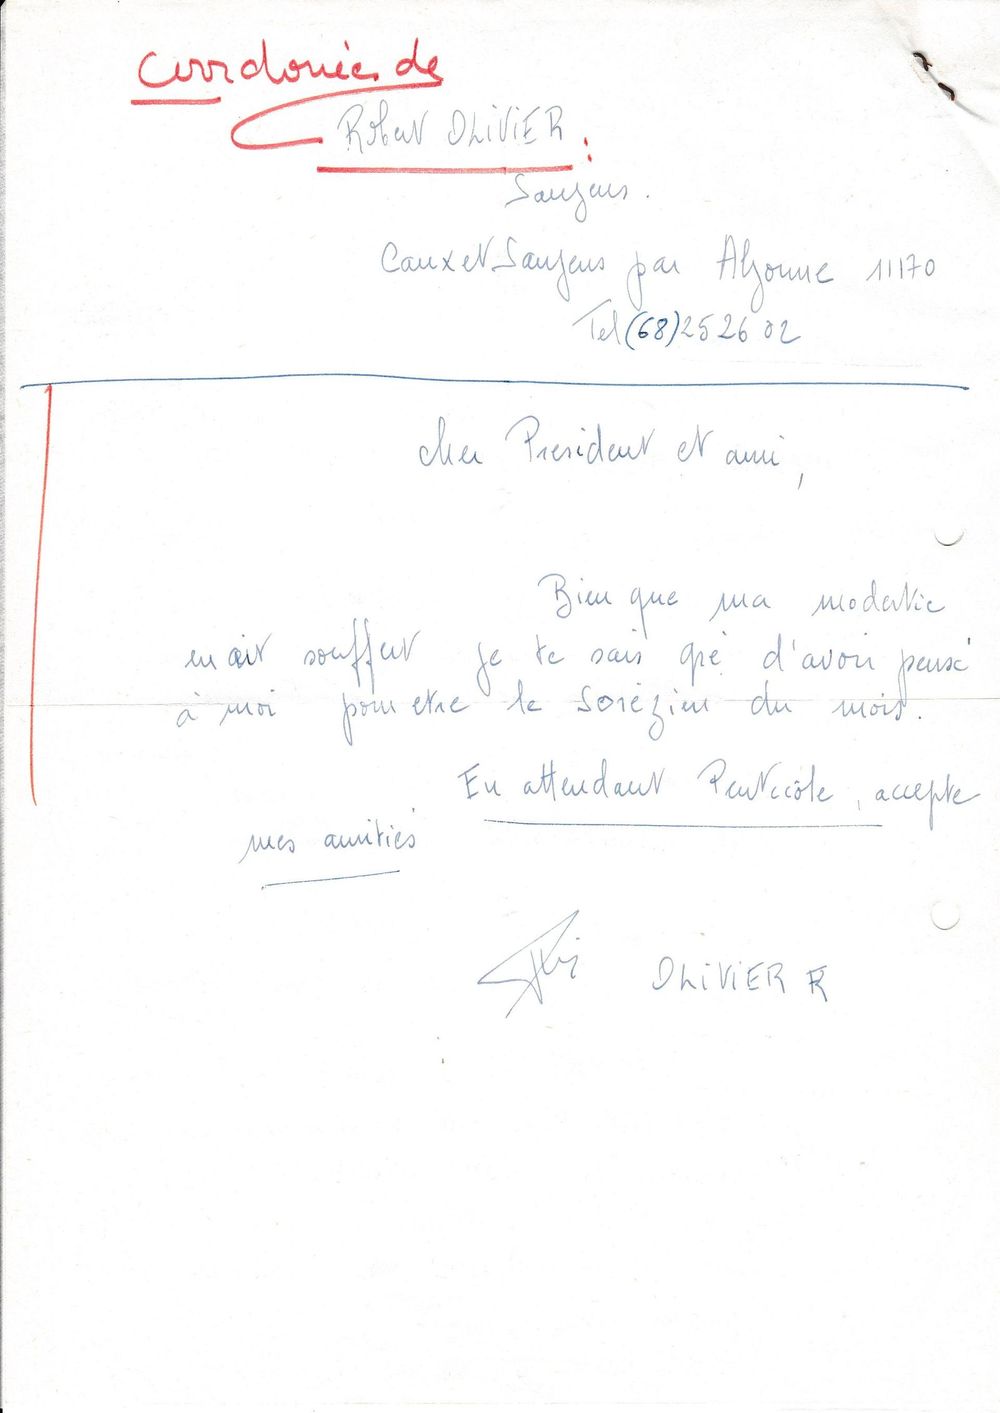 Coordonnées de
Robert OLIVIER :
Sauzens.
Caux et Sauzens par Alzonne 11170
Tel (68) 25 26 02
cher President et ami,
Bien que ma modestie
en ait souffert je te sais gré d'avoir pensé
à moi pour etre le Sorézien du mois.
En attendant Pentecôte, accepte
mes amitiés
OLIVIER R